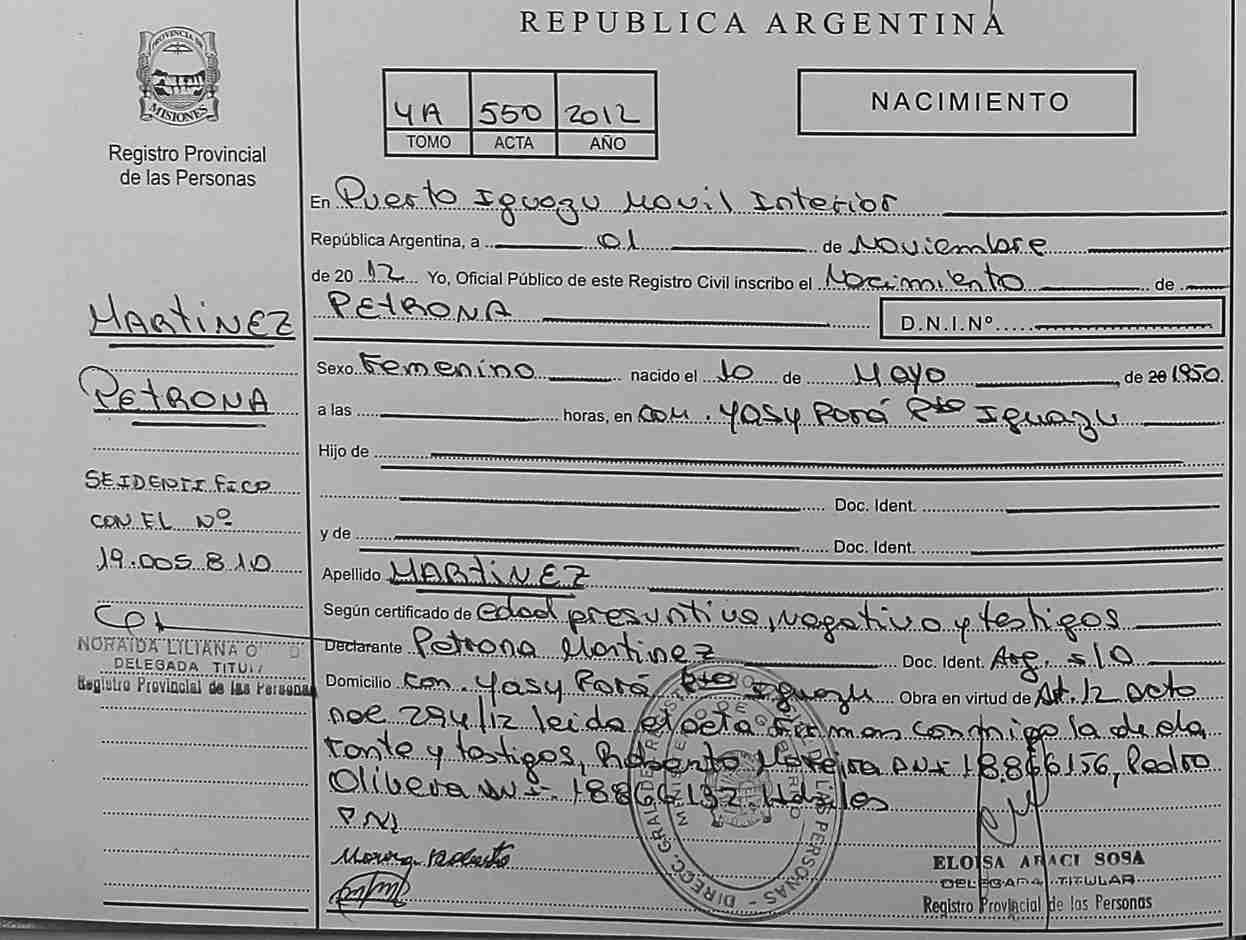 REPUBLICA ARGENTINA
PROVINCIA DE
MISIONES
Registro Provincial
de las Personas
4A 550 2012
TOMO ACTA AÑO
NACIMIENTO
En Puerto Iguazu Movil Interior
República Argentina, a 01 de Noviembre
de 2012 Yo, Oficial Público de este Registro Civil inscribo el Nacimiento de
PETRONA D.N.I.Nº
Sexo Femenino nacido el 10 de Mayo, de 20 1950.
a las horas, en com. Yasy Porá Pto Iguazu
Hijo de
Doc. Ident.
y de Doc. Ident.
Apellido MARTINEZ
Según certificado de edad presuntiva, negativo y testigos
Declarante Petrona Martinez Doc. Ident. Arg. s/D
Domicilio com. Yasy Porá Pto Iguazu Obra en virtud de Art. 12 Dcto
294/12 leida el acta firman conmigo la decla
rante y testigos, Roberto Moreira DNI 18.866156, Pedro
Olivera DNI. 18866132.
MARTINEZ
PETRONA
SE IDENTIFICO
CON EL Nº
19.005.810
NORAIDA LILIANA
DELEGADA TITULAR
Registro Provincial de las Personas
ELOISA ARACI SOSA
DELEGADA TITULAR
Registro Provincial de las Personas